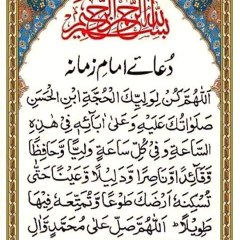 بِسْمِ اللهِ الرَّحْمٰنِ الرَّحِيْمِ
دُعائے امام زمانہ
اَللّٰهُمَّ كُنْ لِوَلِيِّكَ الْحُجَّةِ ابْنِ الْحَسَنِ
صَلَوَاتُكَ عَلَيْهِ وَعَلٰى اٰبَآئِهٖ فِيْ هٰذِهِ
السَّاعَةِ وَفِيْ كُلِّ سَاعَةٍ وَلِيًّا وَّحَافِظًا
وَّقَآئِدًا وَّنَاصِرًا وَّدَلِيْلًا وَّعَيْنًا حَتّٰى
تُسْكِنَهٗ اَرْضَكَ طَوْعًا وَّتُمَتِّعَهٗ فِيْهَا
طَوِيْلًا اَللّٰهُمَّ صَلِّ عَلٰى مُحَمَّدٍ وَّاٰلِ